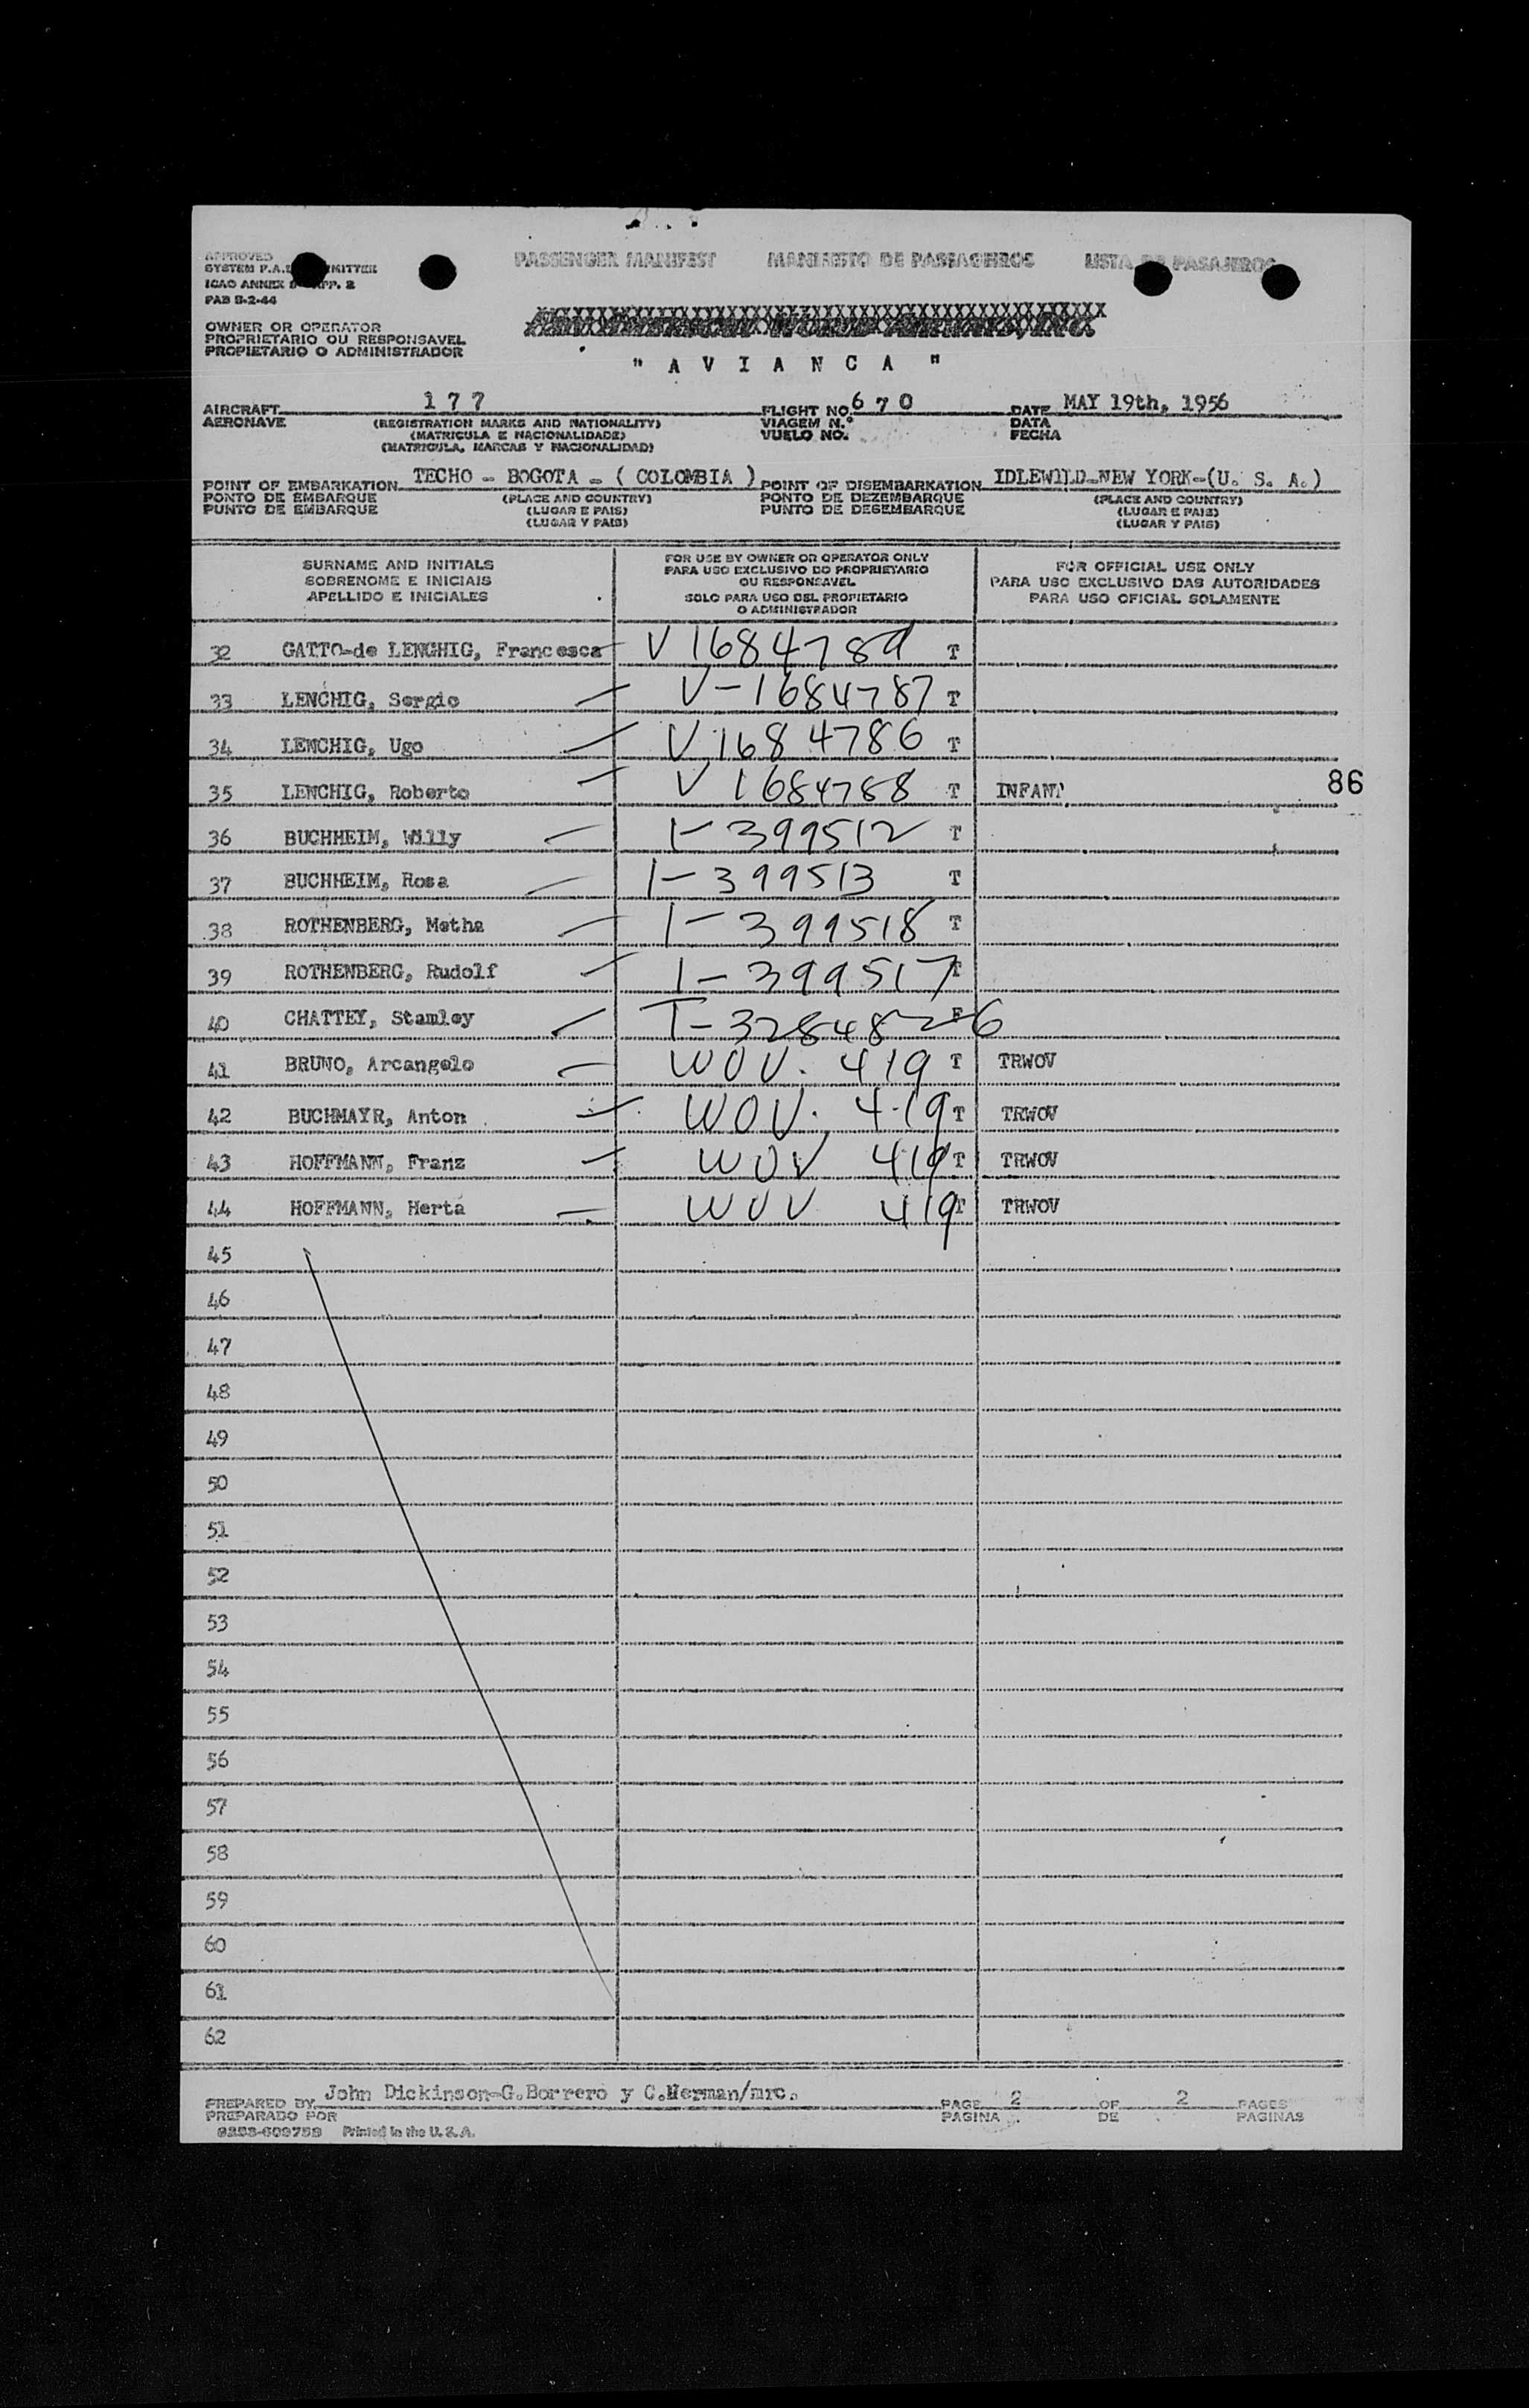 APPROVED PASSENGER MANIFEST MANIFIESTO DE PASSAGEIROS LISTA DE PASAJEROS
SYSTEM P.A.
ICAO ANNEX APP. 2
PAB 8-2-44
OWNER OR OPERATOR
PROPRIETARIO OU RESPONSAVEL
PROPIETARIO O ADMINISTRADOR
" A V I A N C A "
AIRCRAFT 177 FLIGHT NO. 670 DATE MAY 19th, 1956
AERONAVE (REGISTRATION MARKS AND NATIONALITY) VIAGEM N.º DATA
(MATRICULA E NACIONALIDADE) VUELO NO. FECHA
(MATRICULA, MARCAS Y NACIONALIDAD)
POINT OF EMBARKATION TECHO - BOGOTA - ( COLOMBIA ) POINT OF DISEMBARKATION IDLEWILD-NEW YORK-(U. S. A.)
PONTO DE EMBARQUE (PLACE AND COUNTRY) PONTO DE DEZEMBARQUE (PLACE AND COUNTRY)
PUNTO DE EMBARQUE (LUGAR E PAIS) PUNTO DE DESEMBARQUE (LUGAR E PAIS)
(LUGAR Y PAIS) (LUGAR Y PAIS)
SURNAME AND INITIALS
SOBRENOME E INICIAIS
APELLIDO E INICIALES
FOR USE BY OWNER OR OPERATOR ONLY
PARA USO EXCLUSIVO DO PROPRIETARIO
OU RESPONSAVEL
SOLO PARA USO DEL PROPIETARIO
O ADMINISTRADOR
FOR OFFICIAL USE ONLY
PARA USO EXCLUSIVO DAS AUTORIDADES
PARA USO OFICIAL SOLAMENTE
32 GATTO-de LENGHIG, Francesca V 1684789 T
33 LENCHIG, Sergio V-1684787 T
34 LENCHIG, Ugo V 1684786 T
35 LENCHIG, Roberto V 1684788 T INFANT 86
36 BUCHHEIM, Willy I-399512 T
37 BUCHHEIM, Rosa I-399513 T
38 ROTHENBERG, Metha I-399518 T
39 ROTHENBERG, Rudolf I-399517 T
40 CHATTEY, Stamley T-3284826
41 BRUNO, Arcangelo WOV. 419 T TRWOV
42 BUCHMAYR, Anton WOV. 419 T TRWOV
43 HOFFMANN, Franz WOV 419 T TRWOV
44 HOFFMANN, Herta WOV 419 T TRWOV
45
46
47
48
49
50
51
52
53
54
55
56
57
58
59
60
61
62
PREPARED BY John Dickinson-G.Borrero y C.Herman/mrc. PAGE 2 OF 2 PAGES
PREPARADO POR PAGINA DE PAGINAS
Printed in the U.S.A.